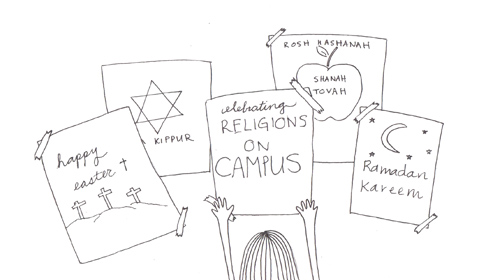 ROSH HASHANAH
SHANAH
TOVAH
KIPPUR
celebrating
RELIGIONS
ON
CAMPUS
happy
easter
Ramadan
Kareem